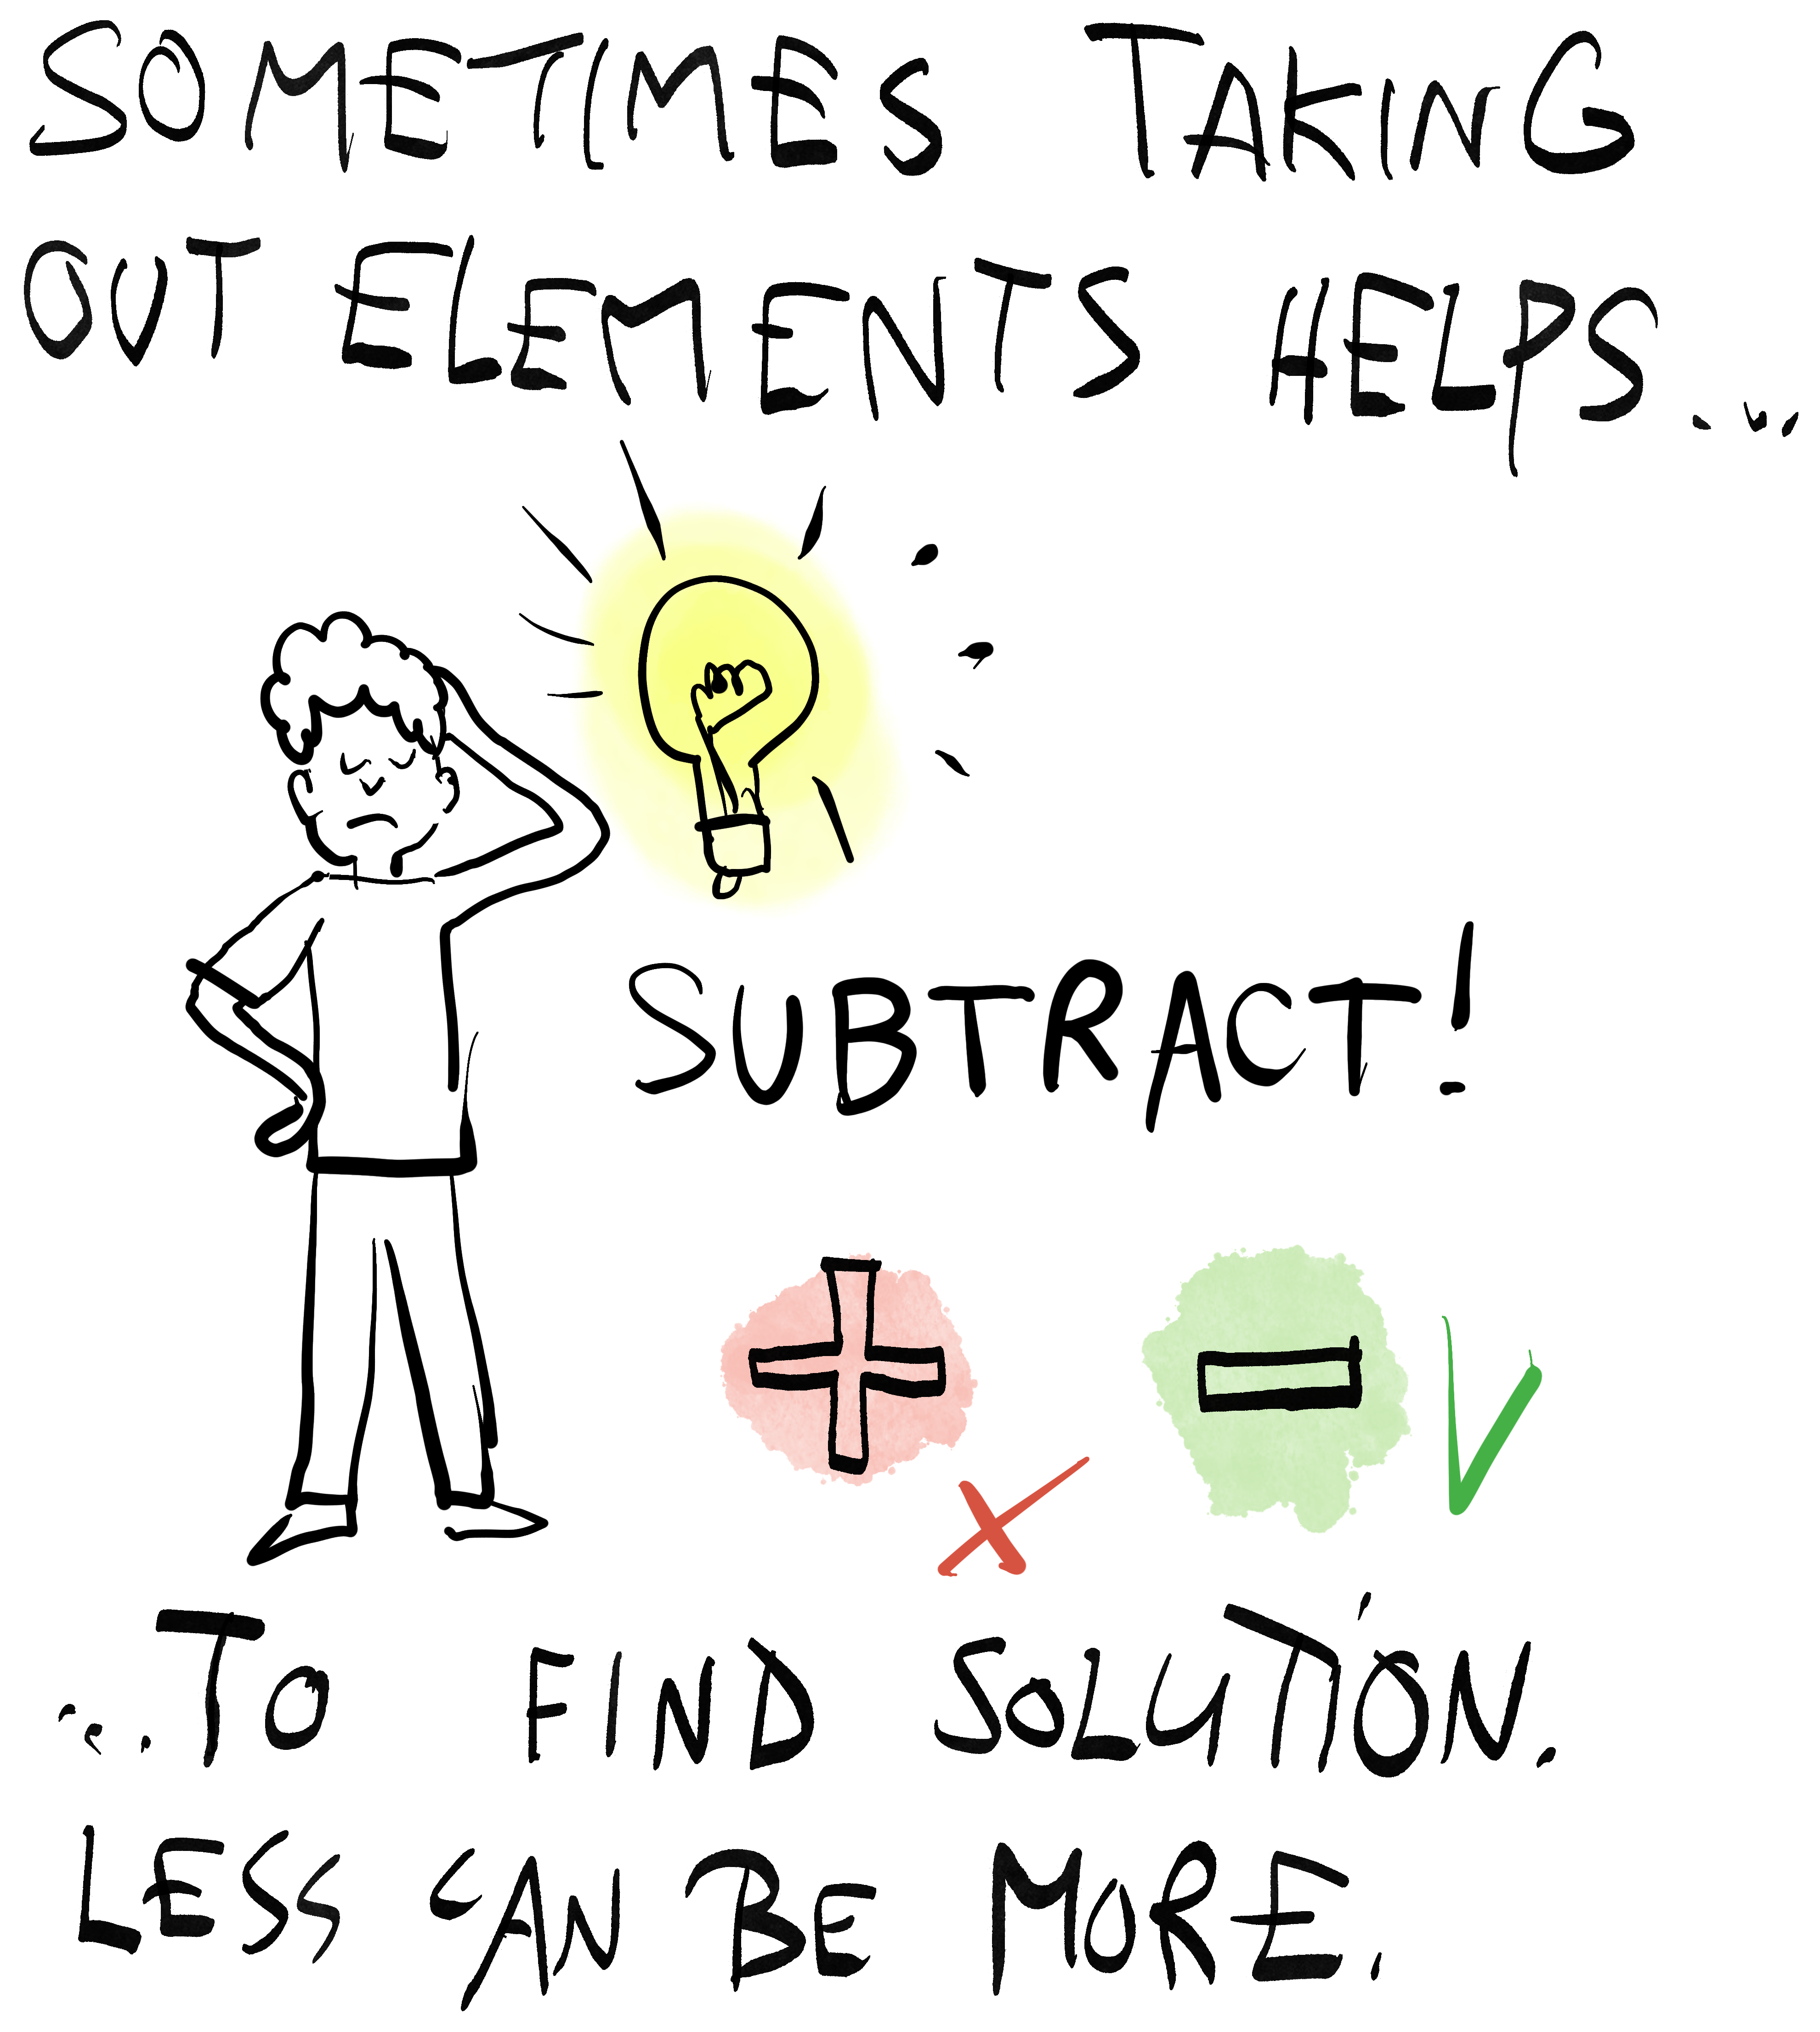 SOMETIMES TAKING
OUT ELEMENTS HELPS...
SUBTRACT!
...TO FIND SOLUTION.
LESS CAN BE MORE.